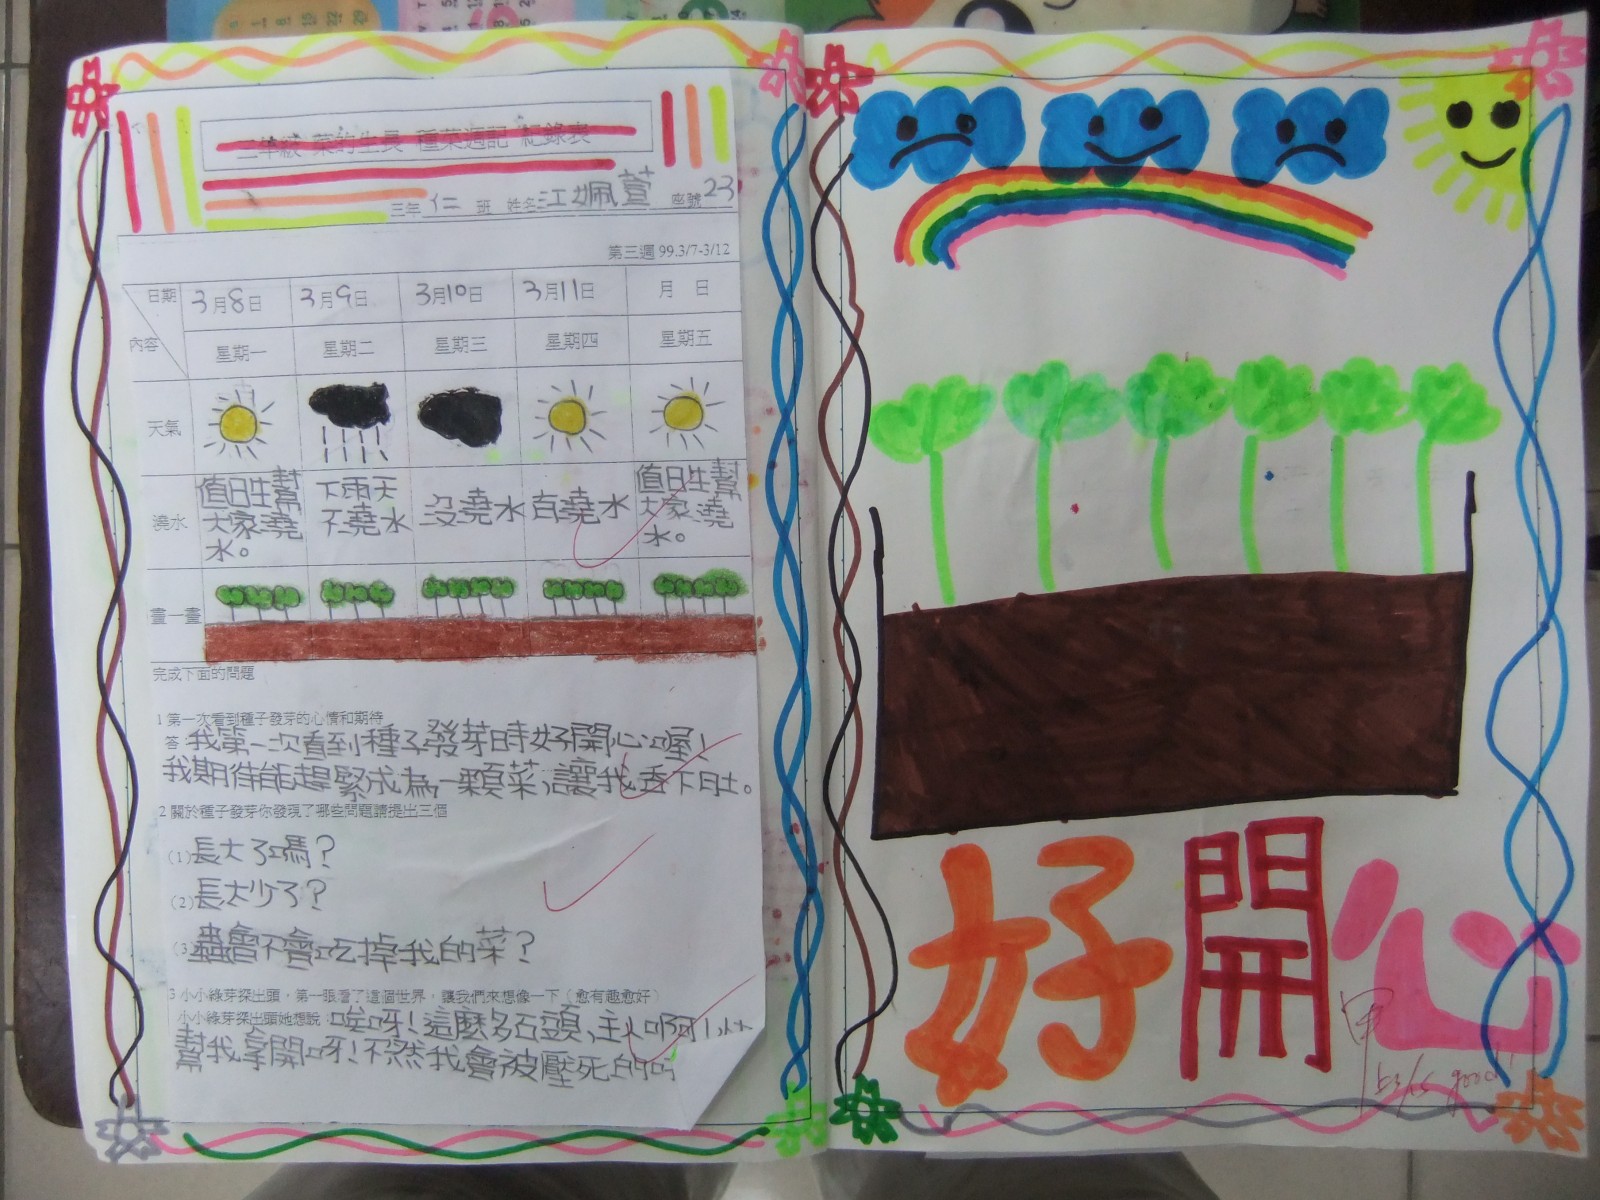 三年級 菜的生長 種菜週記 紀錄表
三年 仁 班 姓名:江姵萱 座號 23
第三週 99.3/7-3/12
日期 3月8日 3月9日 3月10日 3月11日 月 日
內容 星期一 星期二 星期三 星期四 星期五
天氣
澆水
值日生幫
大家澆
水。
下雨天
不澆水
沒澆水
有澆水
值日生幫
大家澆
水。
畫一畫
完成下面的問題
1 第一次看到種子發芽的心情和期待
答 我第一次看到種子發芽時好開心喔!
我期待能趕緊成為一顆菜,讓我吞下肚。
2 關於種子發芽你發現了哪些問題請提出三個
(1)長大了嗎?
(2)長大少了?
(3)蟲會不會吃掉我的菜?
3 小小綠芽探出頭,第一眼看了這個世界,讓我們來想像一下(愈有趣愈好)
小小綠芽探出頭她想說:唉呀!這麼多石頭,主人啊!
幫我拿開呀!不然我會被壓死的
好開心
甲
good!!